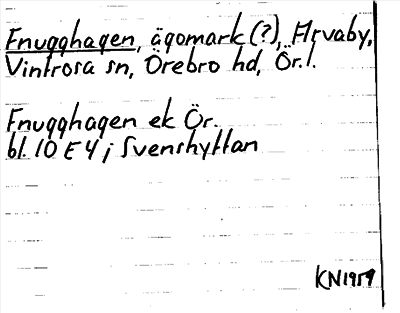 Fnugghagen, ägomark (?), Arvaby,
Vintrosa sn, Örebro hd, Ör. l.
Fnugghagen ek Ör.
bl. 10 E 4 i Svenshyttan
KN 1959